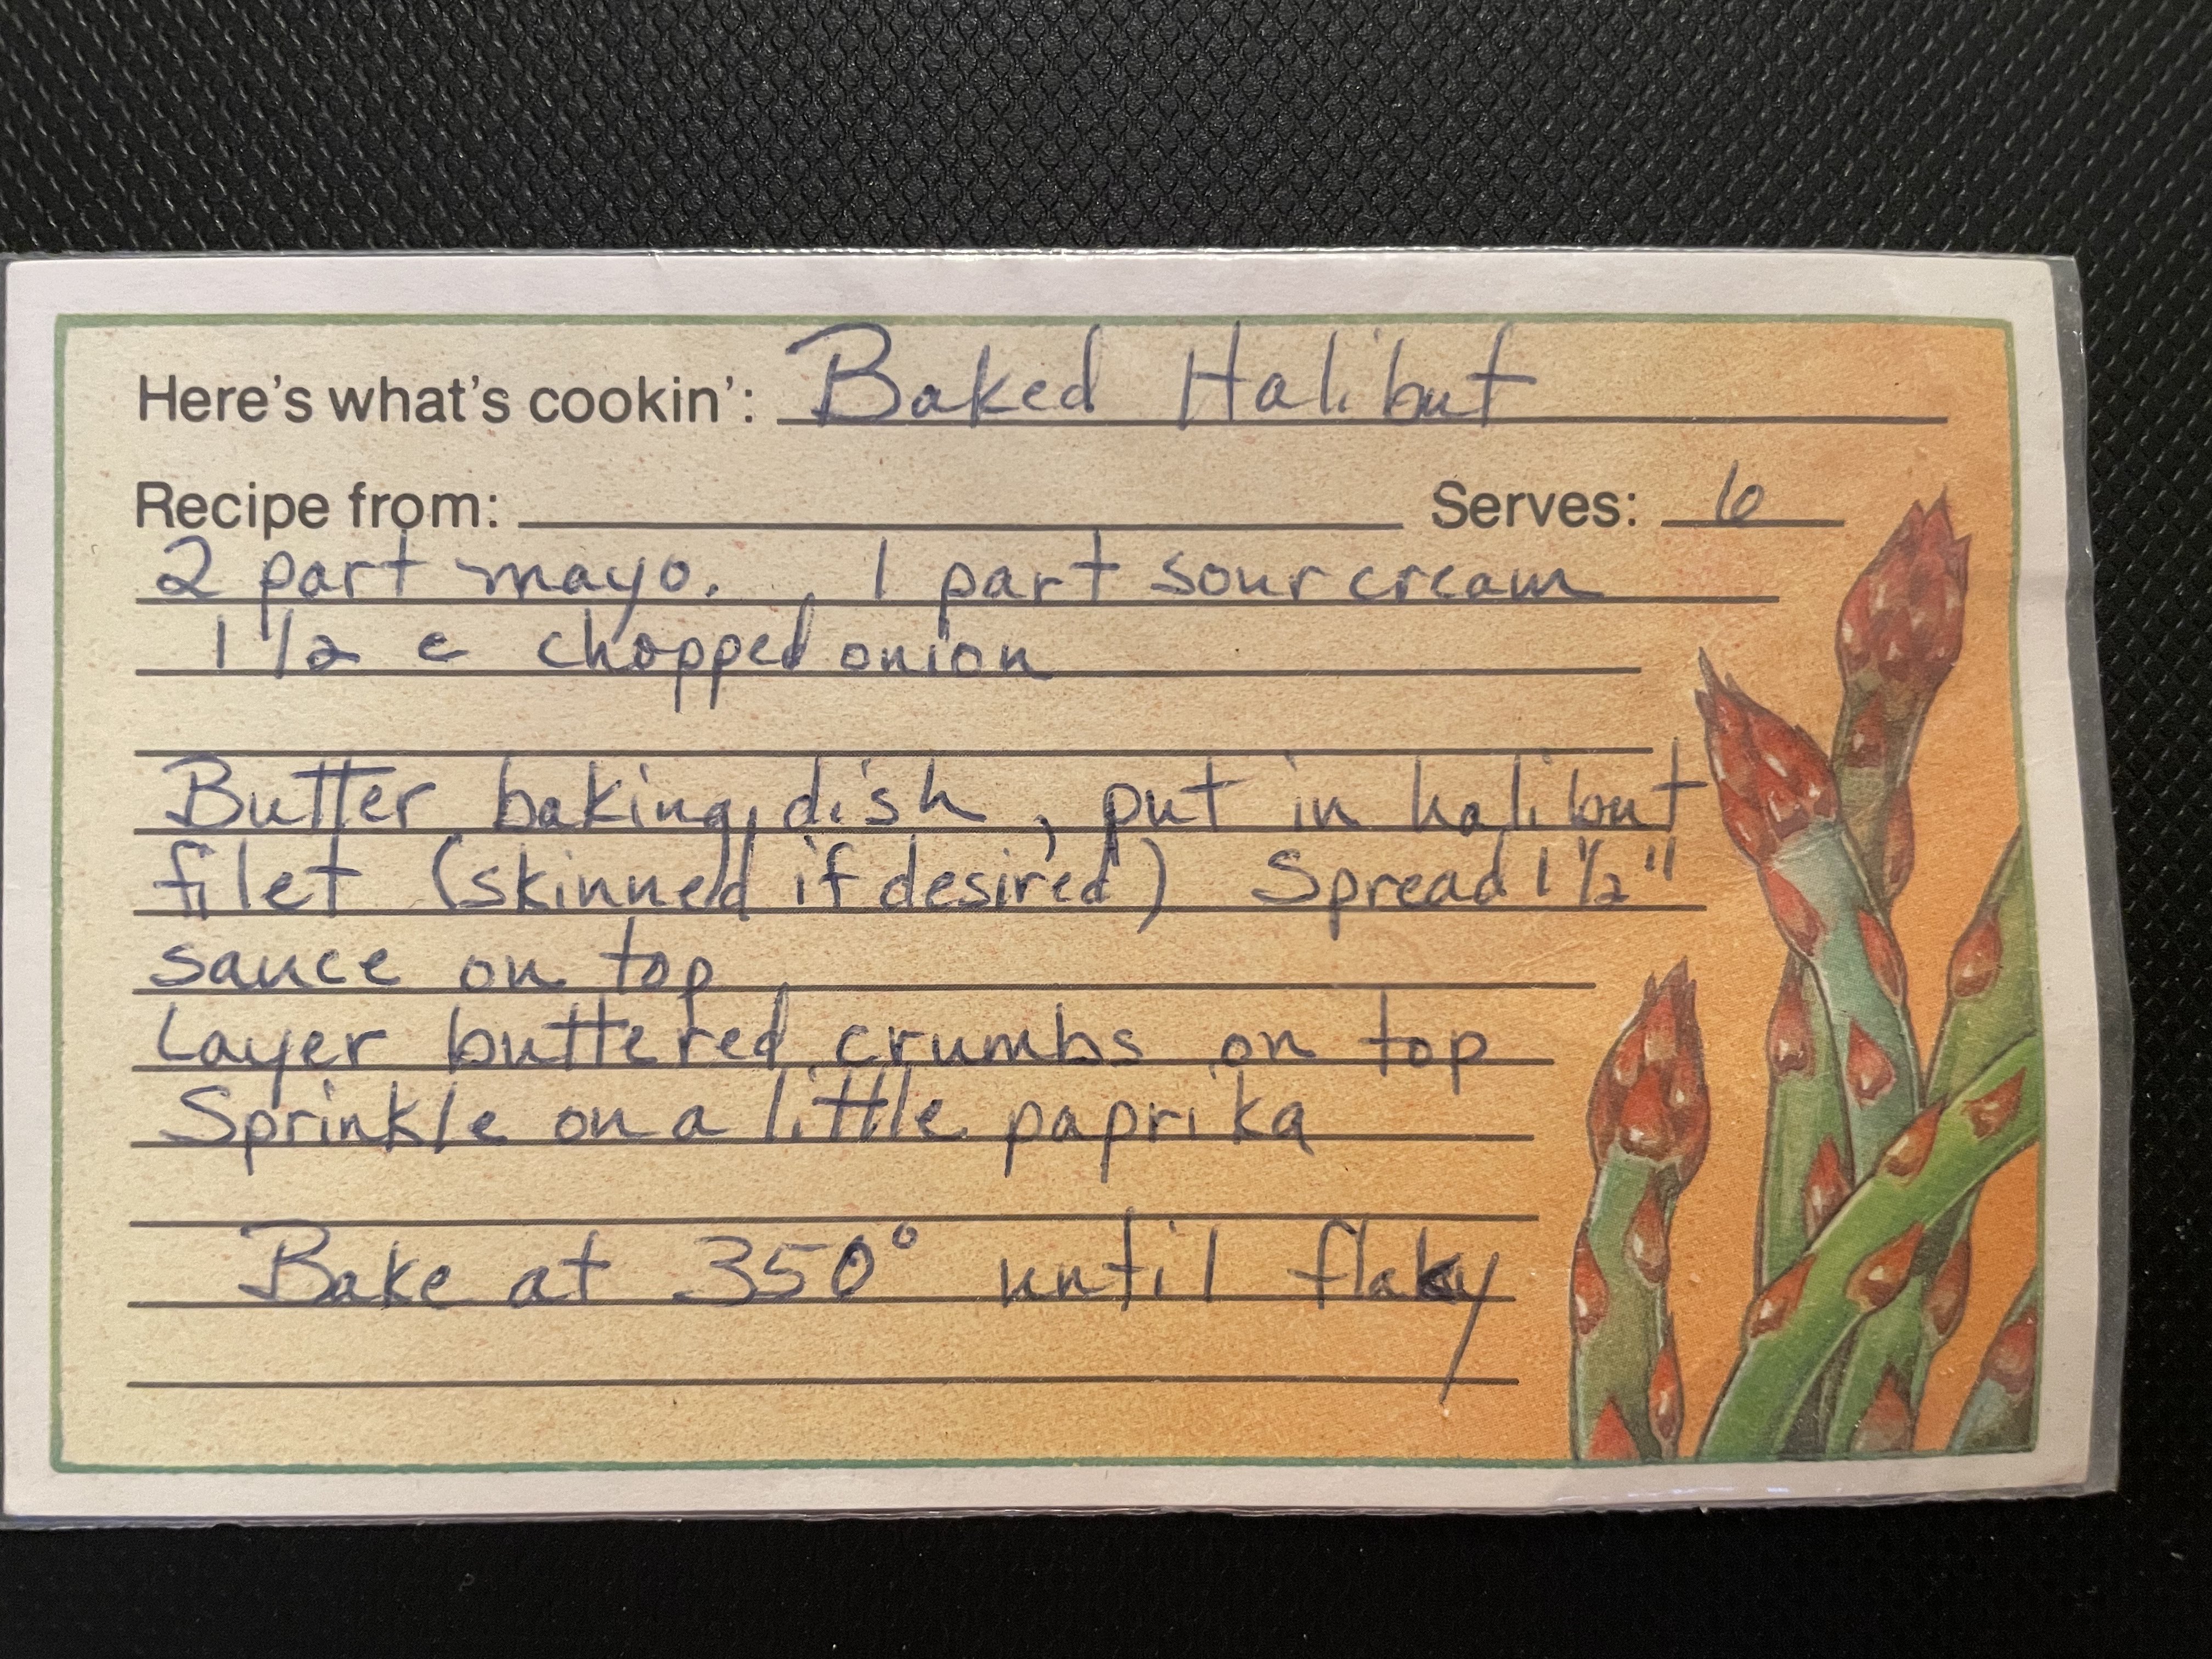 Here's what's cookin': Baked Halibut
Recipe from: Serves: 6
2 part mayo. 1 part sour cream
1 1/2 c chopped onion
Butter baking dish, put in halibut
filet (skinned if desired) Spread 1 1/2"
sauce on top
Layer buttered crumbs on top
Sprinkle on a little paprika
Bake at 350° until flaky